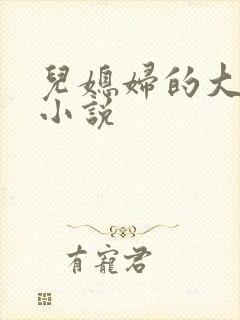 兒媳婦的大
小說
有寵君